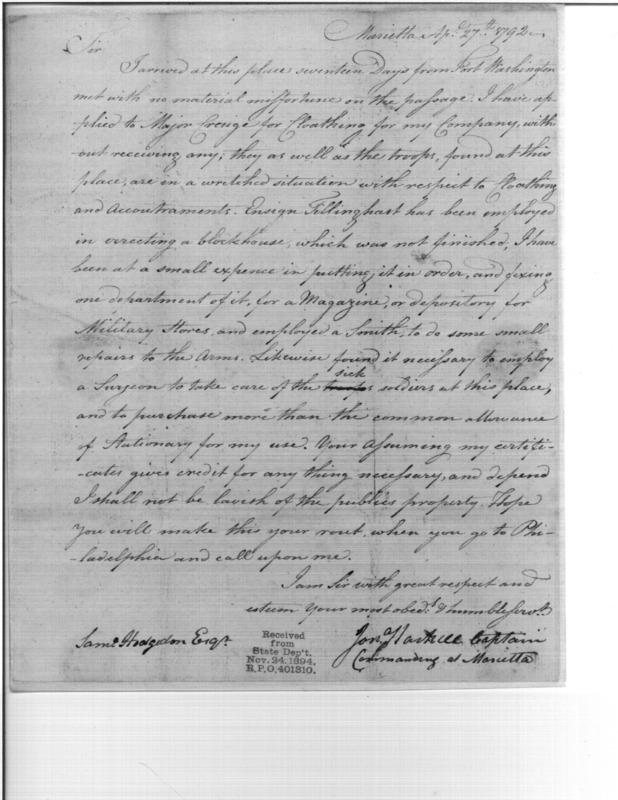 Marietta Ap.l 27.th 1792
Sir
I arrived at this place seventeen Days from Fort Washington
met with no material missfortune on the passage. I have ap-
plied to Major for Cloathing for my Company, with-
-out receiving any; they as well as the troops, found at this
place, are in a wretched situation with respect to Cloathing
and Accoutraments. Ensign Tillinghast has been employed
in errecting a blockhouse, which was not finished, I have
been at a small expence in putting it in order, and fixing
one department of it, for a Magazine, or depository for
Military Stores, and employed a Smith, to do some small
repairs to the Arms. Likewise found it necessary to employ
a Surgeon to take care of the troops sick soldiers at this place,
and to purchase more than the common allowance
of Stationary for my use. Your Assuming my certifi-
-cates gives credit for any thing necessary, and depend
I shall not be lavish of the publics property. I hope
You will make this your rout, when you go to Phi-
-ladelphia and call upon me.
I am Sir with great respect and
esteem Your most obed.t & humble Serv.t
Sam.l Hodgdon Esq.r
Jon.a Haskell Captain
Commanding at Marietta
Received
from
State Dep't.
Nov. 24. 1894.
R.P.O. 401310.